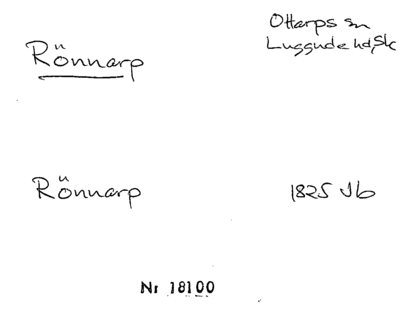 Rönnarp
Ottarps sn
Luggude hd, Sk
Rönnarp
1825 Jb
Nr 18100